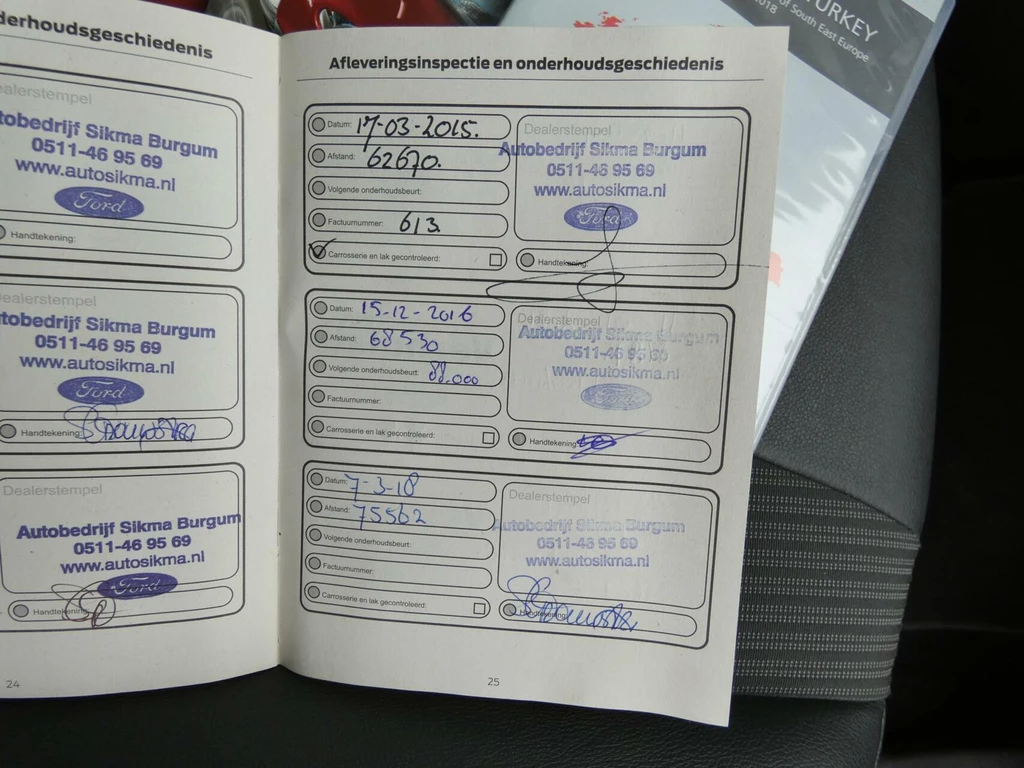 derhoudsgeschiedenis
ealerstempel
tobedrijf Sikma Burgum
0511-46 95 69
www.autosikma.nl
Ford
Handtekening:
ealerstempel
tobedrijf Sikma Burgum
0511-46 95 69
www.autosikma.nl
Ford
Handtekening:
Dealerstempel
Autobedrijf Sikma Burgum
0511-46 95 69
www.autosikma.nl
Ford
Handtekening:
24
Afleveringsinspectie en onderhoudsgeschiedenis
Datum: 17-03-2015.
Afstand: 62670.
Volgende onderhoudsbeurt:
Factuurnummer: 613.
Carrosserie en lak gecontroleerd:
Dealerstempel
Autobedrijf Sikma Burgum
0511-46 95 69
www.autosikma.nl
Ford
Handtekening:
Datum: 15-12-2016
Afstand: 68530
Volgende onderhoudsbeurt: 88.000
Factuurnummer:
Carrosserie en lak gecontroleerd:
Dealerstempel
Autobedrijf Sikma Burgum
0511-46 95 69
www.autosikma.nl
Ford
Handtekening:
Datum: 7-3-18
Afstand: 75562
Volgende onderhoudsbeurt:
Factuurnummer:
Carrosserie en lak gecontroleerd:
Dealerstempel
Autobedrijf Sikma Burgum
0511-46 95 69
www.autosikma.nl
Handtekening:
25
TURKEY
of South East Europe
2018